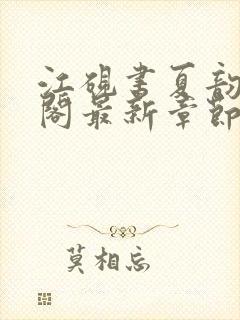 江砚书夏韵
阁最新章节
莫相忘